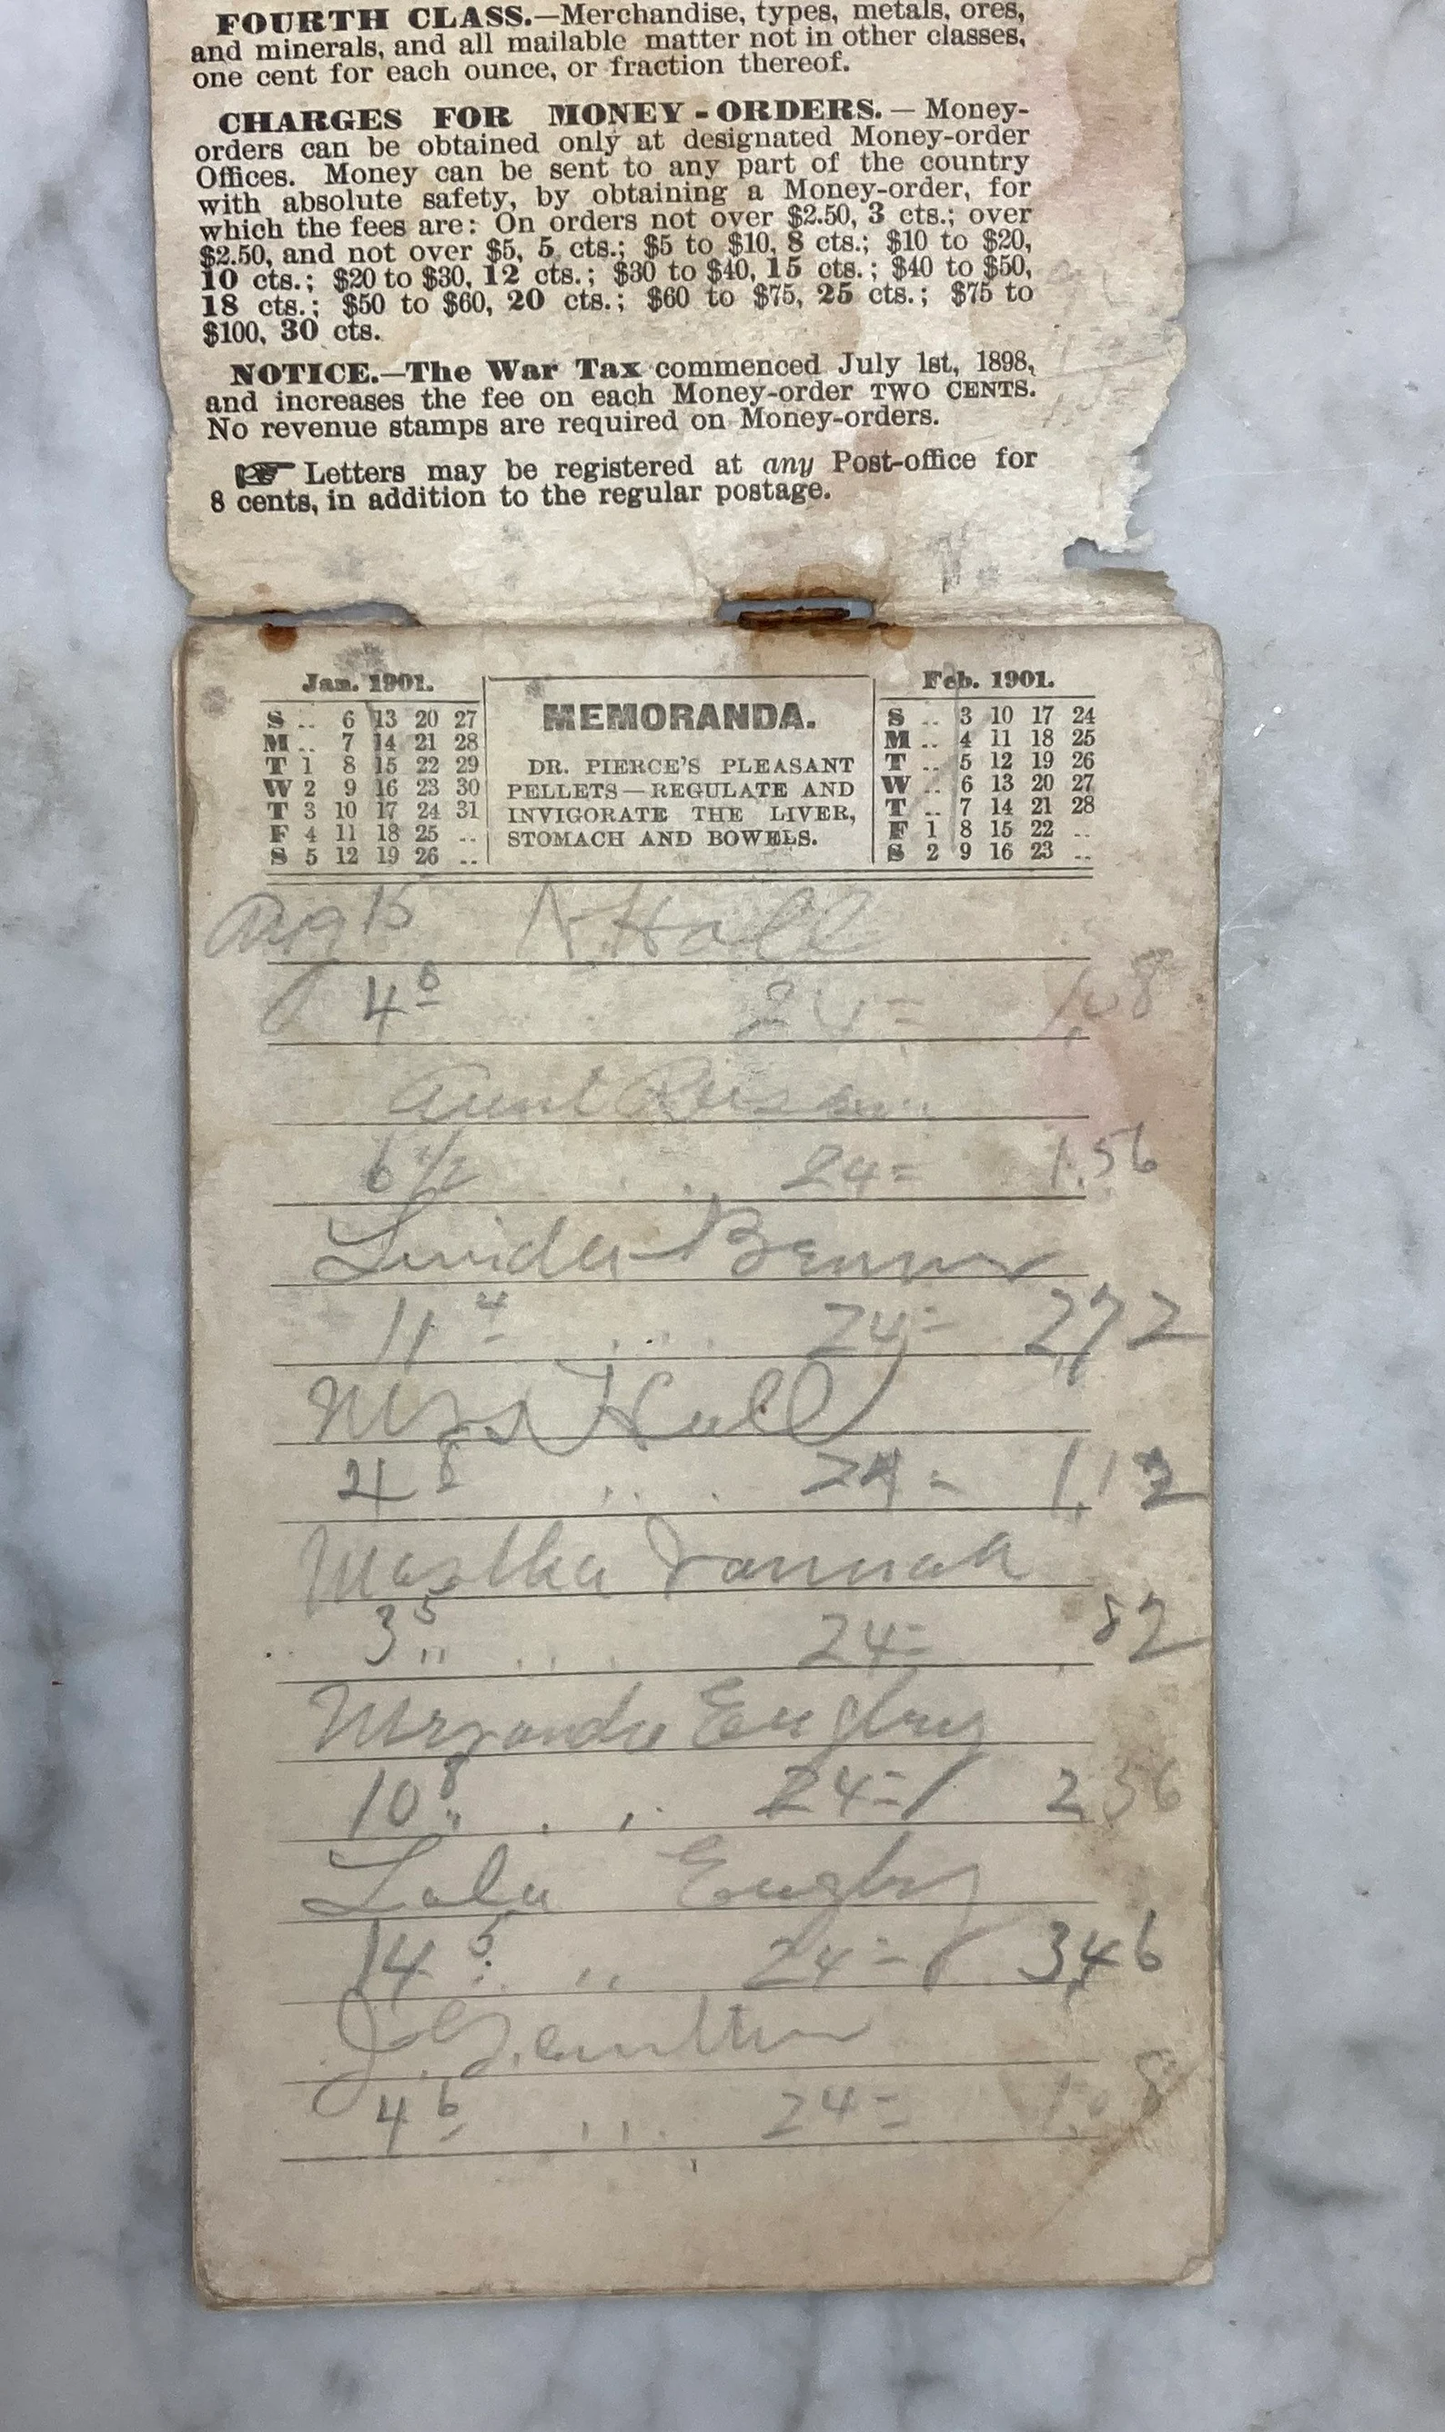 FOURTH CLASS.—Merchandise, types, metals, ores,
and minerals, and all mailable matter not in other classes,
one cent for each ounce, or fraction thereof.
CHARGES FOR MONEY-ORDERS.—Money-
orders can be obtained only at designated Money-order
Offices. Money can be sent to any part of the country
with absolute safety, by obtaining a Money-order, for
which the fees are: On orders not over $2.50, 3 cts.; over
$2.50, and not over $5, 5 cts.; $5 to $10, 8 cts.; $10 to $20,
10 cts.; $20 to $30, 12 cts.; $30 to $40, 15 cts.; $40 to $50,
18 cts.; $50 to $60, 20 cts.; $60 to $75, 25 cts.; $75 to
$100, 30 cts.
NOTICE.—The War Tax commenced July 1st, 1898,
and increases the fee on each Money-order TWO CENTS.
No revenue stamps are required on Money-orders.
☞ Letters may be registered at any Post-office for
8 cents, in addition to the regular postage.
Jan. 1901.
S .. 6 13 20 27
M .. 7 14 21 28
T 1 8 15 22 29
W 2 9 16 23 30
T 3 10 17 24 31
F 4 11 18 25 ..
S 5 12 19 26 ..
MEMORANDA.
DR. PIERCE'S PLEASANT
PELLETS—REGULATE AND
INVIGORATE THE LIVER,
STOMACH AND BOWELS.
Feb. 1901.
S .. 3 10 17 24
M .. 4 11 18 25
T .. 5 12 19 26
W .. 6 13 20 27
T .. 7 14 21 28
F 1 8 15 22 ..
S 2 9 16 23 ..
Aug 15 A. Hall
4 24= 1,08
Aunt
6 1/2 24= 1.56
Linda Benner
11 4 24= 2,72
Mrs Hall
4 8 24= 1,12
Martha Jannah
3 5 24= 82
10 8 24= 2 56
Lola Eugley
14 5 24= 3,46
J.
4 6 24= 1.08